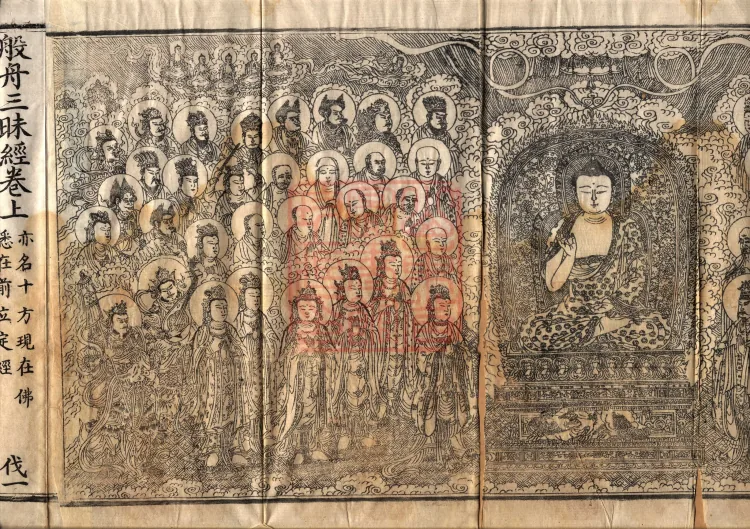 般舟三昧經卷上
亦名十方現在佛
悉在前立定經
伐一